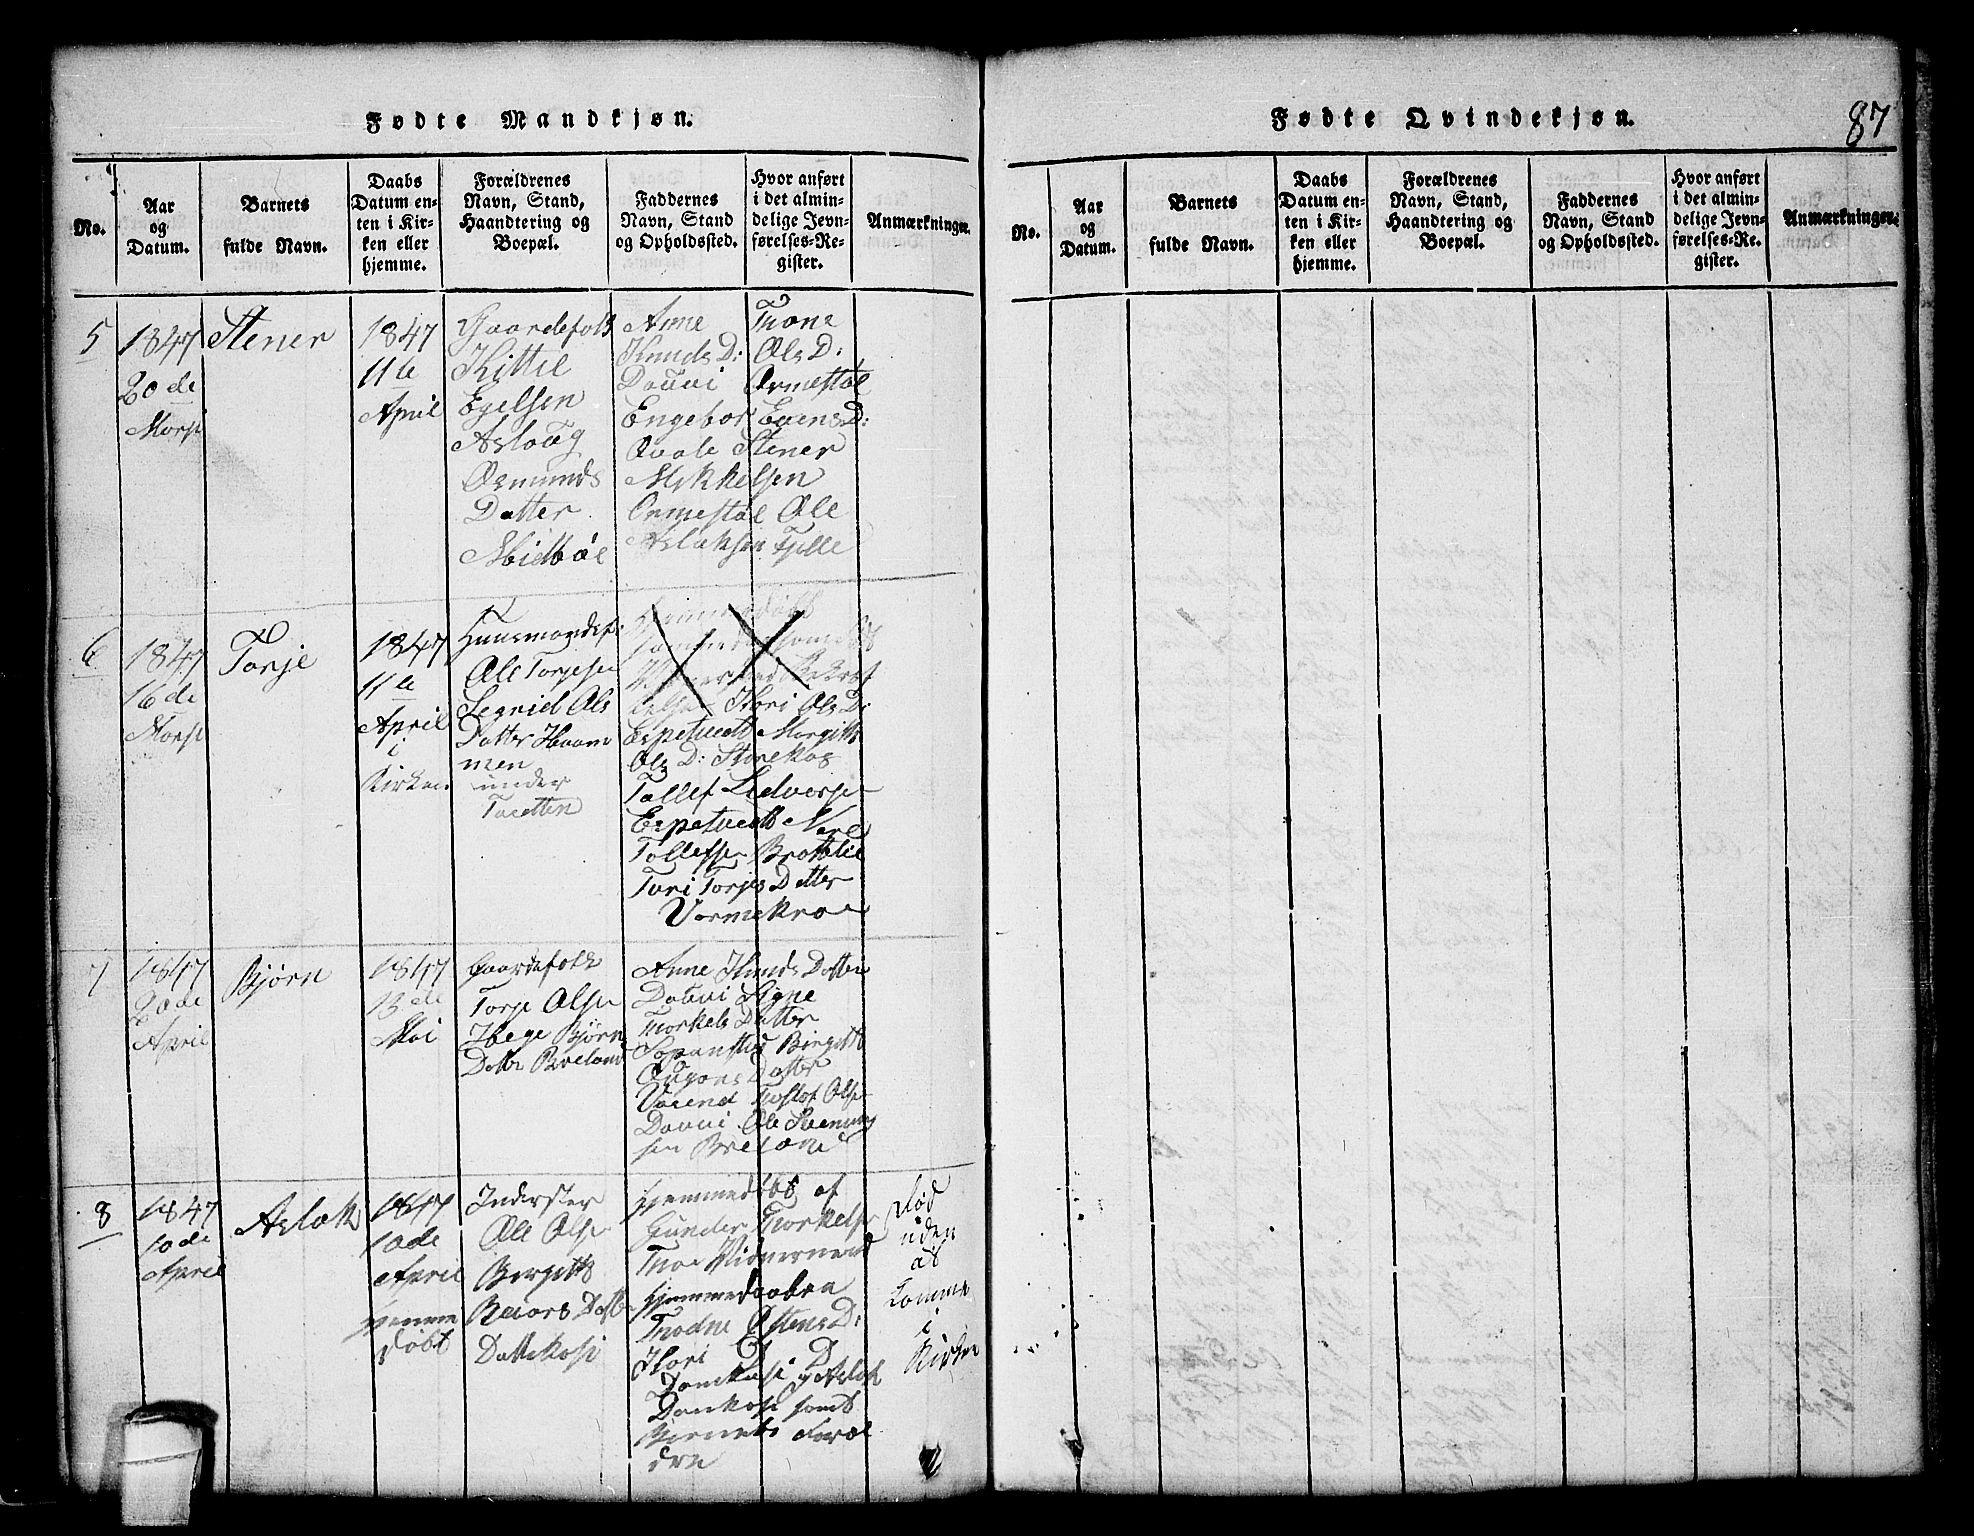 Fødte Mandkjøn.
No.
Aar
og
Datum.
Barnets
fulde Navn.
Daabs
Datum en-
ten i Kir-
ken eller
hjemme.
Forældrenes
Navn, Stand,
Haandtering og
Boepæl.
Faddernes
Navn, Stand
og Opholdssted.
Hvor anført
i det almin-
delige Jevn-
førelses-Re-
gister.
Anmærkninger.
5
1847
20de
Marsi
Stener
1847
11te
April
Gaardefolk
Kittil
Egelsen
Aslaug
Osmunds
Datter
Midbøe
Anne Thone
Knuds D: Ols D:
Dauvi Ormestøl
Engebor Evens D:
Qvale Stener
Mikkelsen
Ormestøl Ole
Aslaksen Fjelle
6
1847
16de
Marsi
Torje
1847
11te
April
i
Kirken
Huusmandsf:
Ole Torjesen
Segnid Ols
Datter Haam
men
under
Tvetten
Kori Ols D:
Espetvedt Margitte
Ols D: Storekaas
Tollef Lidvorsen
Espetvedt Nere
Tollefsen Brottelie
Turi Torjes Datter
Vormekroe
7
1847
20de
April
Bjørn
1847
13de
Mai
Gaardefolk
Torje Olsen
Hege Bjørn
Datter Breland
Anne Knuds Datter
Dauvi Signe
Thorkels Datter
Birgitte
Datter
Vaaend Olsen
Dauvi Ole Steenung
sen Breland
8
1847
10de
April
Aslak
1847
10de
April
hjemme
døbt
Inderster
Ole Olsen
Bergitte
Reiars Datter
Dalekasi
Hjemmedøbt af
Gunder Thorkelsen
Thoe Vidnerne ved
hjemmedaaben
Thodne Ostens D:
Kori D
Danekasi og Aslak
Danekasi samt
Barnets Foræl
dre
Død
uden
at
komme
i
Kirken
Fødte Qvindekjøn.
87
No.
Aar
og
Datum.
Barnets
fulde Navn.
Daabs
Datum en-
ten i Kir-
ken eller
hjemme.
Forældrenes
Navn, Stand,
Haandtering og
Boepæl.
Faddernes
Navn, Stand
og Opholdssted.
Hvor anført
i det almin-
delige Jevn-
førelses-Re-
gister.
Anmærkninger.